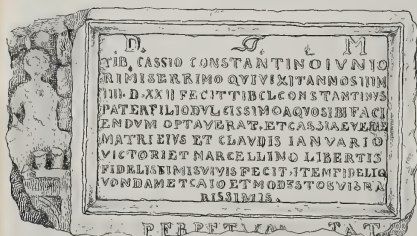 D. M
TIB. CASSIO CONSTANTINO IVNIO
RI MISERRIMO QVI VIXIT ANNOS IIII M
IIII D XXII FECIT TIB CL CONSTANTINVS
PATER FILIO DVLCISSIMO A QVO SIBI FACI
ENDVM OPTAVERAT, ET CASSIAE VERE
MATRI EIVS ET CLAVDIS IANVARIO
VICTORI ET MARCELLINO LIBERTIS
FIDELISSIMIS VIVIS FECIT, ITEM FIDELI Q
VONDAM ET CAIO ET MODESTO SVIS RA
RISSIMIS.
PERPETVAE TAT